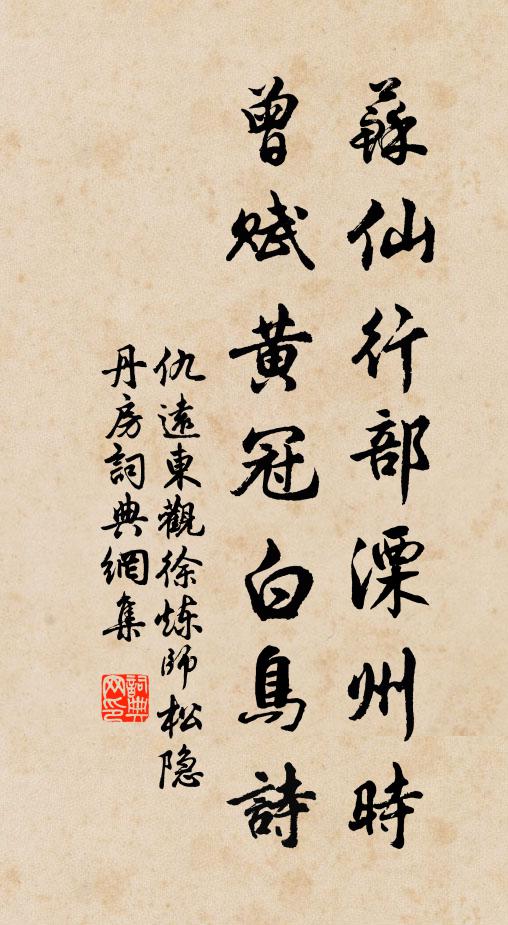 蘇仙行部溧州時
曾賦黄冠白鳥詩
仇遠東觀徐炼師松隐
丹房詞典網集
詞典
网印